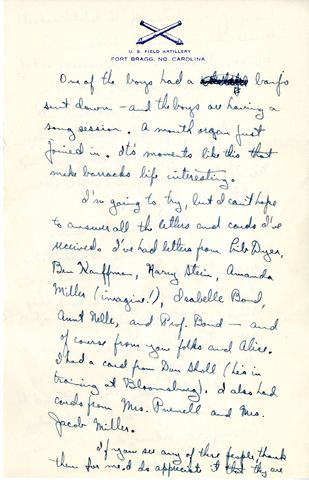 U. S. FIELD ARTILLERY
FORT BRAGG, NO. CAROLINA
One of the boys had a banjo
sent down - and the boys are having a
song session. A mouth organ just
joined in. It's moments like this that
make barracks life interesting.
I'm going to try, but I can't hope
to answer all the letters and cards I've
received. I've had letters from Dyer,
Ben Kauffman, Harry Stein, Amanda
Miller (imagine!), Isabelle Bond,
Aunt Nelle, and Prof. Bond - and
of course from you folks and Alice.
I had a card from Dan Sholl (he's in
training at Bloomsburg). I also had
cards from Mrs. Pursell and Mrs.
Jacob Miller.
If you see any of these people, thank
them for me. I do appreciate it that they are